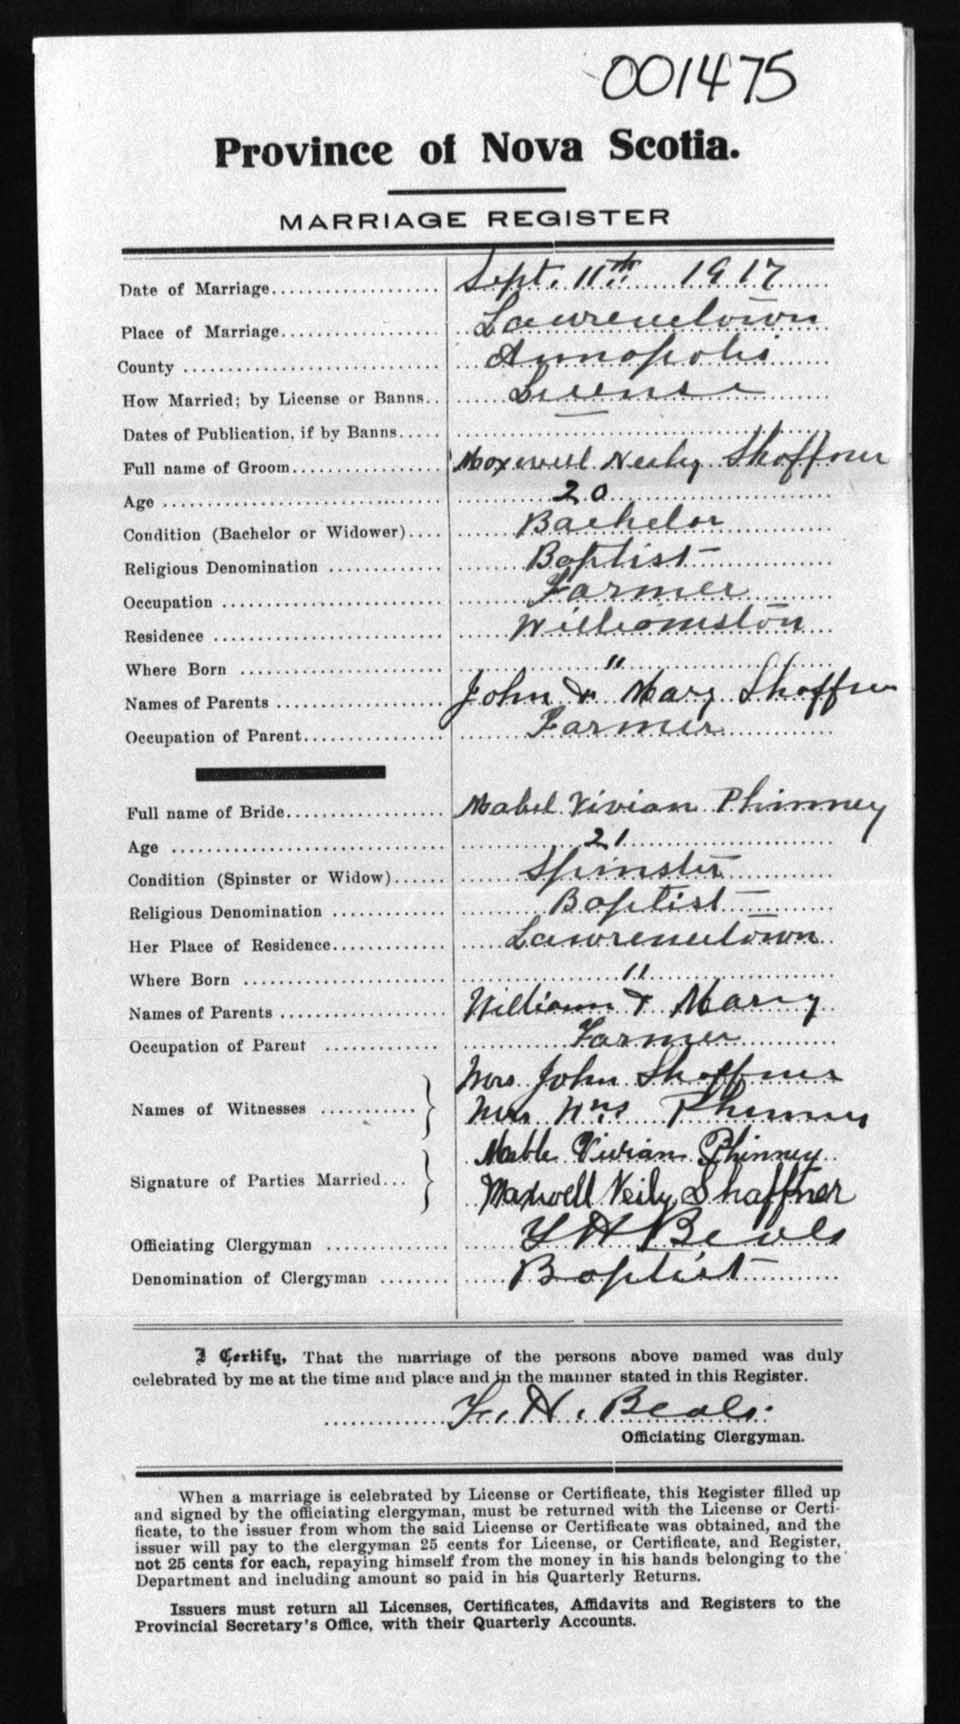 001475
Province of Nova Scotia.
MARRIAGE REGISTER
Date of Marriage Sept. 11th 1917
Place of Marriage Lawrencetown
County Annapolis
How Married; by License or Banns License
Dates of Publication, if by Banns —
Full name of Groom Maxwell Neily Shaffner
Age 20
Condition (Bachelor or Widower) Bachelor
Religious Denomination Baptist
Occupation Farmer
Residence Williamston
Where Born "
Names of Parents John & Mary Shaffner
Occupation of Parent Farmer
Full name of Bride Mabel Vivian Phinney
Age 21
Condition (Spinster or Widow) Spinster
Religious Denomination Baptist
Her Place of Residence Lawrencetown
Where Born "
Names of Parents William & Mary
Occupation of Parent Farmer
Names of Witnesses } Mrs. John Shaffner
Mrs Wm Phinney
Signature of Parties Married } Mable Vivian Phinney
Maxwell Neily Shaffner
Officiating Clergyman H Beals
Denomination of Clergyman Baptist
I Certify, That the marriage of the persons above named was duly
celebrated by me at the time and place and in the manner stated in this Register.
H. Beals.
Officiating Clergyman.
When a marriage is celebrated by License or Certificate, this Register filled up
and signed by the officiating clergyman, must be returned with the License or Certi-
ficate, to the issuer from whom the said License or Certificate was obtained, and the
issuer will pay to the clergyman 25 cents for License, or Certificate, and Register,
not 25 cents for each, repaying himself from the money in his hands belonging to the
Department and including amount so paid in his Quarterly Returns.
Issuers must return all Licenses, Certificates, Affidavits and Registers to the
Provincial Secretary's Office, with their Quarterly Accounts.